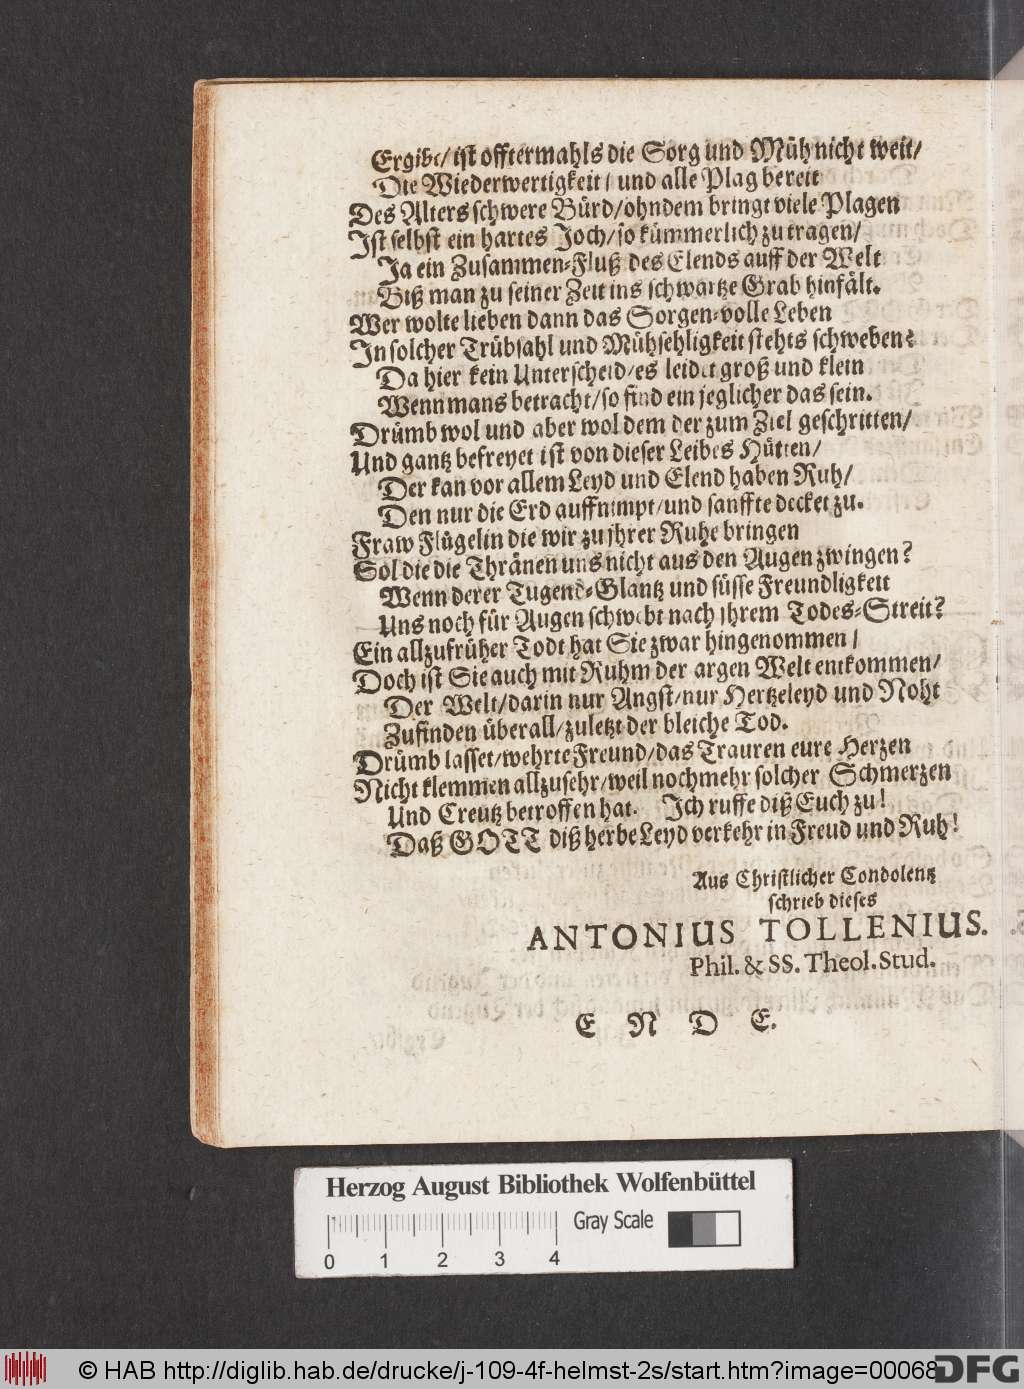 Ergibt/ ist offtermahls die Sorg und Müh nicht weit/
Die Wiederwertigkeit/ und alle Plag bereit
Des Alters schwere Bürd/ ohndem bringt viele Plagen
Ist selbst ein hartes Joch/ so kümmerlich zu tragen/
Ja ein Zusammen-Fluß des Elends auff der Welt
Biß man zu seiner Zeit ins schwartze Grab hinfält.
Wer wolte lieben dann das Sorgen-volle Leben
In solcher Trübsahl und Mühsehligkeit stehts schweben?
Da hier kein Unterscheid/ es leidet groß und klein
Wenn mans betracht/ so find ein jeglicher das sein.
Drümb wol und aber wol dem der zum Ziel geschritten/
Und gantz befreyet ist von dieser Leibes Hütten/
Der kan vor allem Leyd und Elend haben Ruh/
Den nur die Erd auffnimpt/ und sanffte decket zu.
Fraw Flügelin die wir zu jhrer Ruhe bringen
Sol die die Thränen uns nicht aus den Augen zwingen?
Wenn derer Tugend-Glantz und süsse Freundligkeit
Uns noch für Augen schwebt nach jhrem Todes-Streit?
Ein allzufrüher Todt hat Sie zwar hingenommen/
Doch ist Sie auch mit Ruhm der argen Welt entkommen/
Der Welt/ darin nur Angst/ nur Hertzeleyd und Noht
Zufinden überall/ zuletzt der bleiche Tod.
Drümb lasset/ wehrte Freund/ das Trauren eure Herzen
Nicht klemmen allzusehr/ weil noch mehr solcher Schmerzen
Und Creutz betroffen hat. Ich ruffe diß Euch zu!
Daß GOTT diß herbe Leyd verkehr in Freud und Ruh!
Aus Christlicher Condolentz
schrieb dieses
ANTONIUS TOLLENIUS.
Phil. & SS. Theol. Stud.
E N D E.
Herzog August Bibliothek Wolfenbüttel
Gray Scale
0 1 2 3 4
© HAB http://diglib.hab.de/drucke/j-109-4f-helmst-2s/start.htm?image=00068
DFG